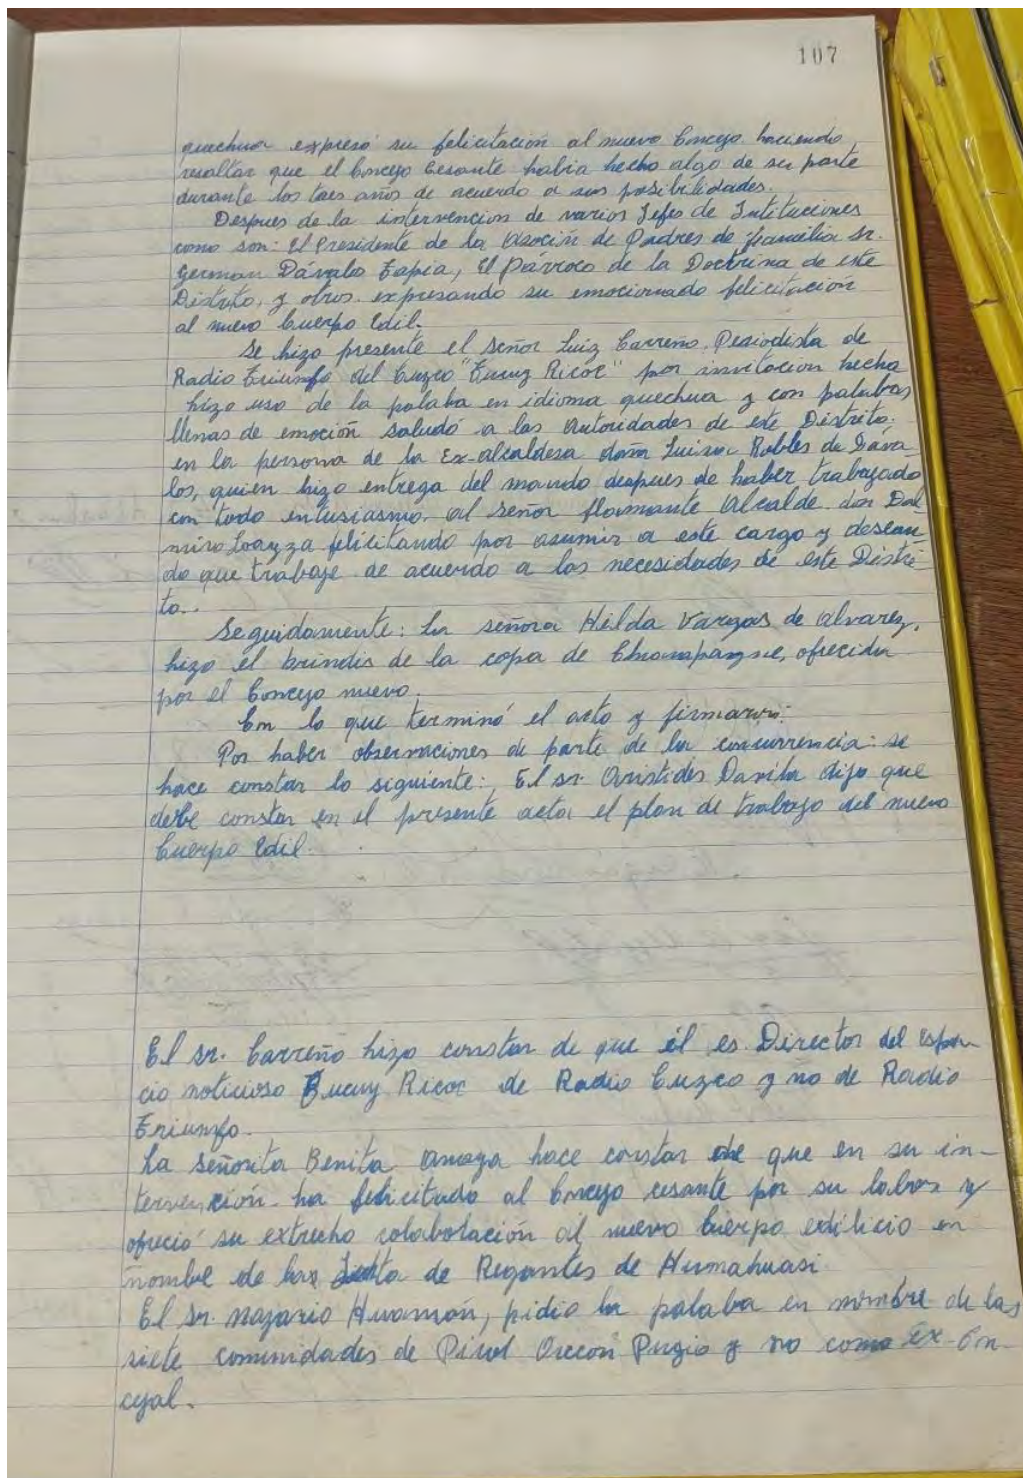 107
quechua expresó su felicitación al nuevo Concejo haciendo
resaltar que el Concejo Cesante habia hecho algo de su parte
durante los tres años de acuerdo a sus posibilidades.
Despues de la intervencion de varios Jefes de Intituciones
como son: El Presidente de la Asociín de Padres de familia Sr.
German Dávalos Tapia, El Párroco de la Doctrina de este
Distrito, y otros expresando su emocionado felicitación
al nuevo Cuerpo Edil.
Se hizo presente el señor Luiz Carreno, Periodista de
Radio Triunfo del Cuzco "Tucuy Ricoc" por invitacion hecha
hizo uso de la palaba en idioma quechua y con palabras
llenas de emoción saludó a las Autoridades de este Distrito;
en la persona de la Ex-alcaldesa doña Luisa Robles de Dava
los, quien hizo entrega del mando despues de haber trabajado
con todo entusiasmo, al señor flamante Alcalde don Dal
miro Loayza felicitando por asumir a este cargo y desean
do que trabaje de acuerdo a las necesidades de este Distri-
to..
Seguidamente: La señora Hilda Vargas de Alvarez,
hizo el brindis de la copa de , ofrecida
por el Concejo nuevo.
Con lo que terminó el acto y firmaron:
Por haber observaciones de parte de la concurrencia: se
hace constar lo siguiente: El sr. Aristides Davila dijo que
debe constar en el presente acta el plan de trabajo del nuevo
Cuerpo Edil.
El sr. Carreño hizo constar de que él es Director del espa-
cio noticioso Tucuy Ricoc de Radio Cuzco y no de Radio
Triunfo.
La señorita Benita Amaya hace constar de que en su in-
tervención ha felicitado al Concejo cesante por su labor y
ofreció su extrecho colabolación al nuevo Cuerpo edilicio en
nombre de la Junta de Regantes de Humahuasi.
El sr. Nazario Huamán, pidio la palaba en nombre de las
siete comunidades de y no como Ex-Con-
cejal.